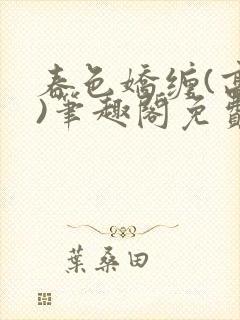 春色嬌缠(高
)筆趣閣免費
葉桑田